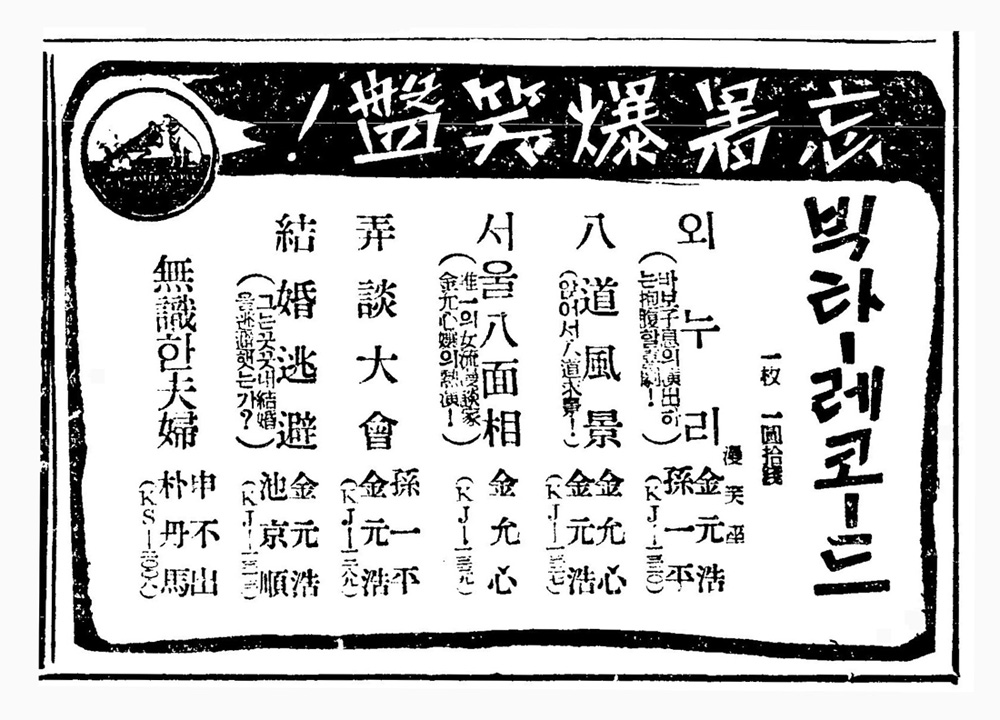 忘暑爆笑盤!
빅타ー레코ー드
一枚 一圓拾錢
외누리
(바보子息의演出하
는抱腹할喜劇!)
漫笑
金元浩
孫一平
八道風景
(앉어서八道求景!)
金允心
金元浩
서울八面相
(唯一의女流漫談家
金允心孃의熱演!)
金允心
弄談大會
孫一平
金元浩
結婚逃避
(그는곳곳내結婚
을逃避햇는가?)
金元浩
池京順
無識한夫婦
申不出
朴丹馬